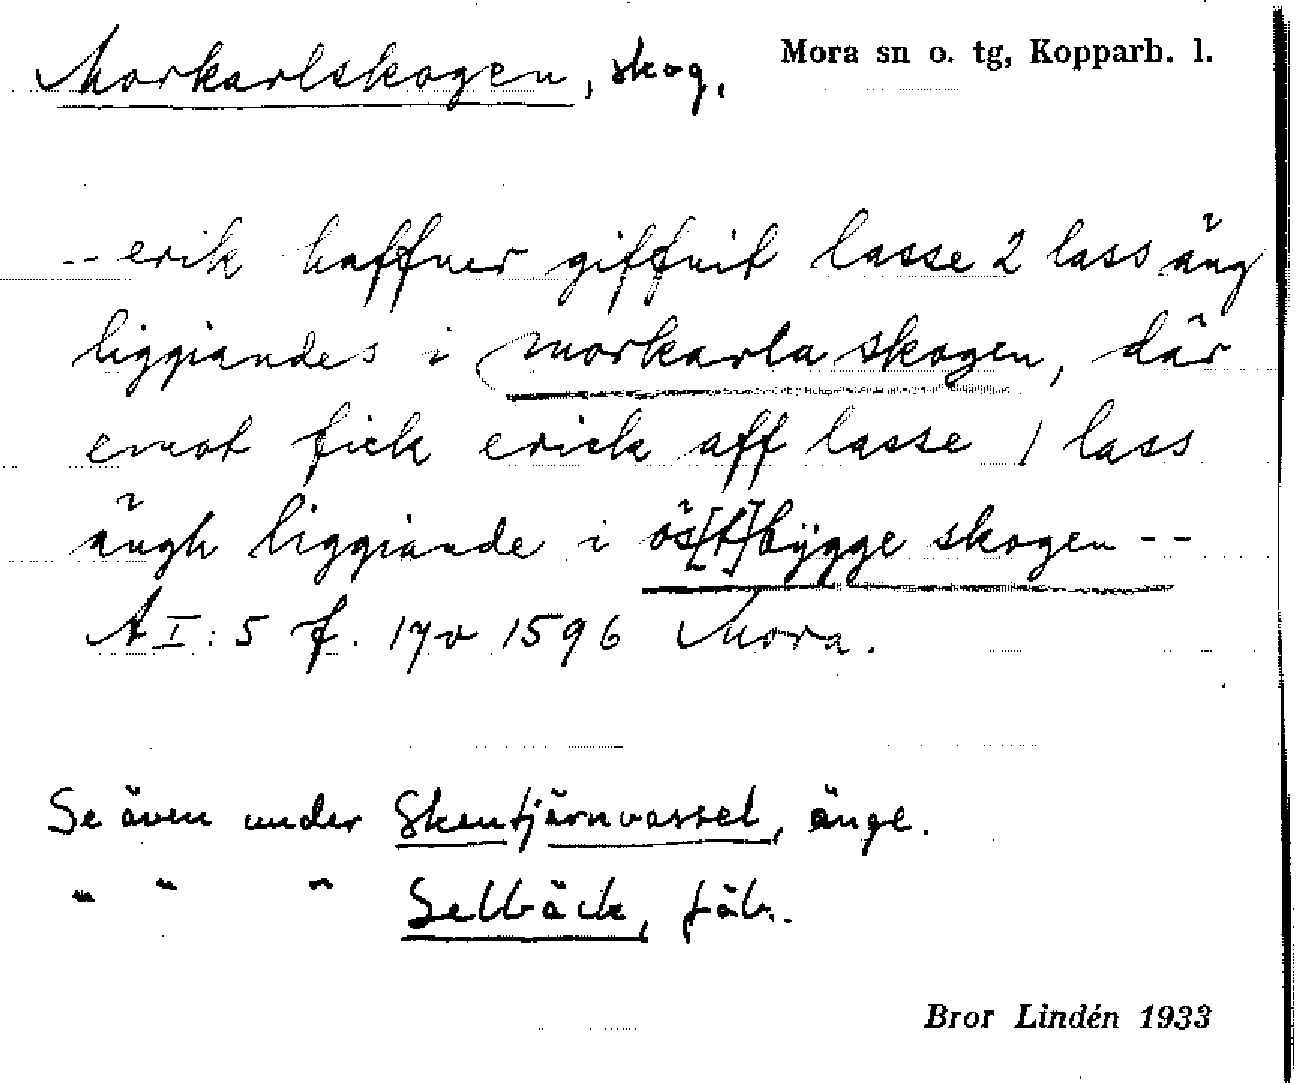 Morkarlskogen, skog.
Mora sn o. tg, Kopparb. l.
-- erik haffuer giffuit lasse 2 lass äng
liggiandes i morkarla skogen, där
emot fick erick aff lasse 1 lass
ängh liggiande i ös[t]bÿgge skogen --
A I: 5 f. 17v 1596 Mora.
Se även under Skentjärnvassel, änge.
" " " Selbäck, fäb.
Bror Lindén 1933